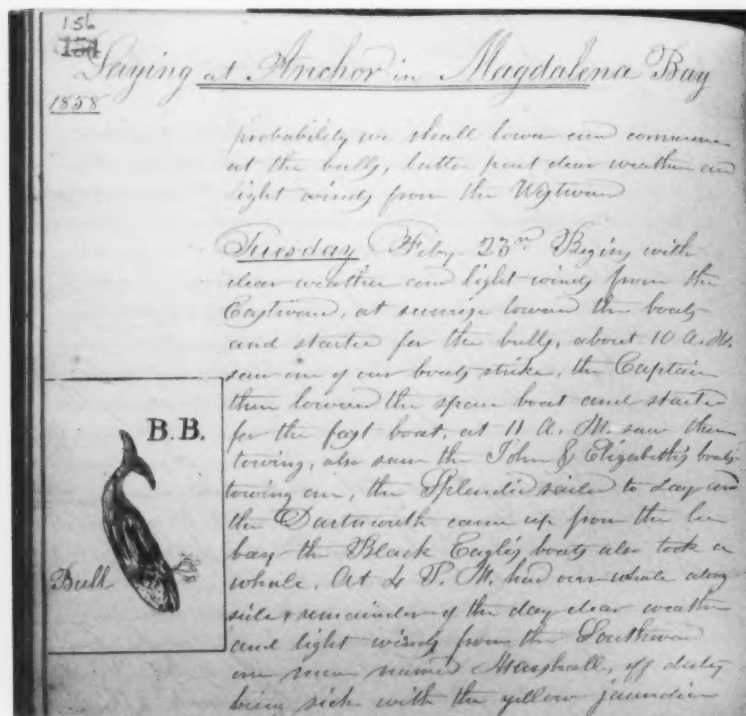 156
154
Laying at Anchor in Magdalena Bay
1858
probability we shall lower and commence
at the bulls, latter part clear weather and
light winds from the Westward
Tuesday Feby 23rd Begins with
clear weather and light winds from the
Eastward, at sunrise lowered the boats
and started for the bulls, about 10 A.M.
saw one of our boats strike, the Captain
then lowered the spare boat and started
for the fast boat, at 11 A.M. saw them
towing, also saw the John & Elizabeth's boats
towing one, the Splendid sailed to day and
the Dartmouth came up from the lee
bay the Black Eagle's boats also took a
whale. At 4 P.M. had our whale along
side & remainder of the day clear weather
and light winds from the Southward
one man named Marshall, off duty
being sick with the yellow jaundice
B.B.
Bull